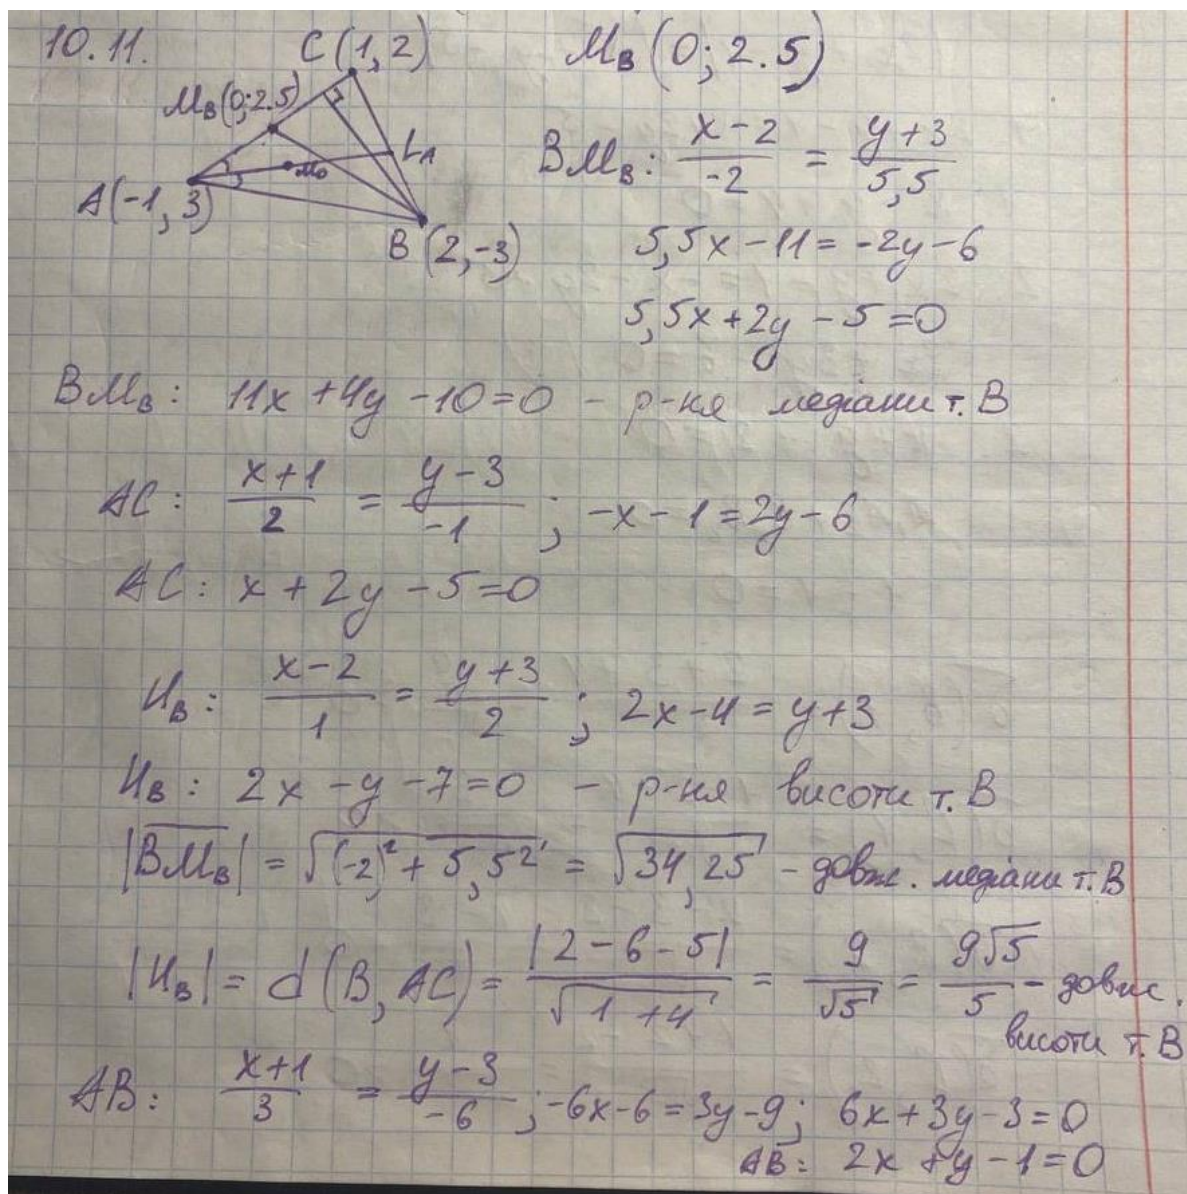 10.11.
C(1,2)
M_B(0;2.5)
M_B(0;2.5)
L_A
M_0
A(-1,3)
B(2,-3)
BM_B: (x-2)/(-2) = (y+3)/(5,5)
5,5x-11=-2y-6
5,5x+2y-5=0
BM_B: 11x+4y-10=0 - р-ня медіани т.B
AC: (x+1)/2 = (y-3)/(-1); -x-1=2y-6
AC: x+2y-5=0
H_B: (x-2)/1 = (y+3)/2; 2x-4=y+3
H_B: 2x-y-7=0 - р-ня висоти т.B
|BM_B| = √((-2)²+5,5²) = √34,25 - довж. медіани т.B
|H_B| = d(B, AC) = |2-6-5|/√(1+4) = 9/√5 = 9√5/5 - довж.
висоти т.B
AB: (x+1)/3 = (y-3)/(-6); -6x-6=3y-9; 6x+3y-3=0
AB: 2x+y-1=0